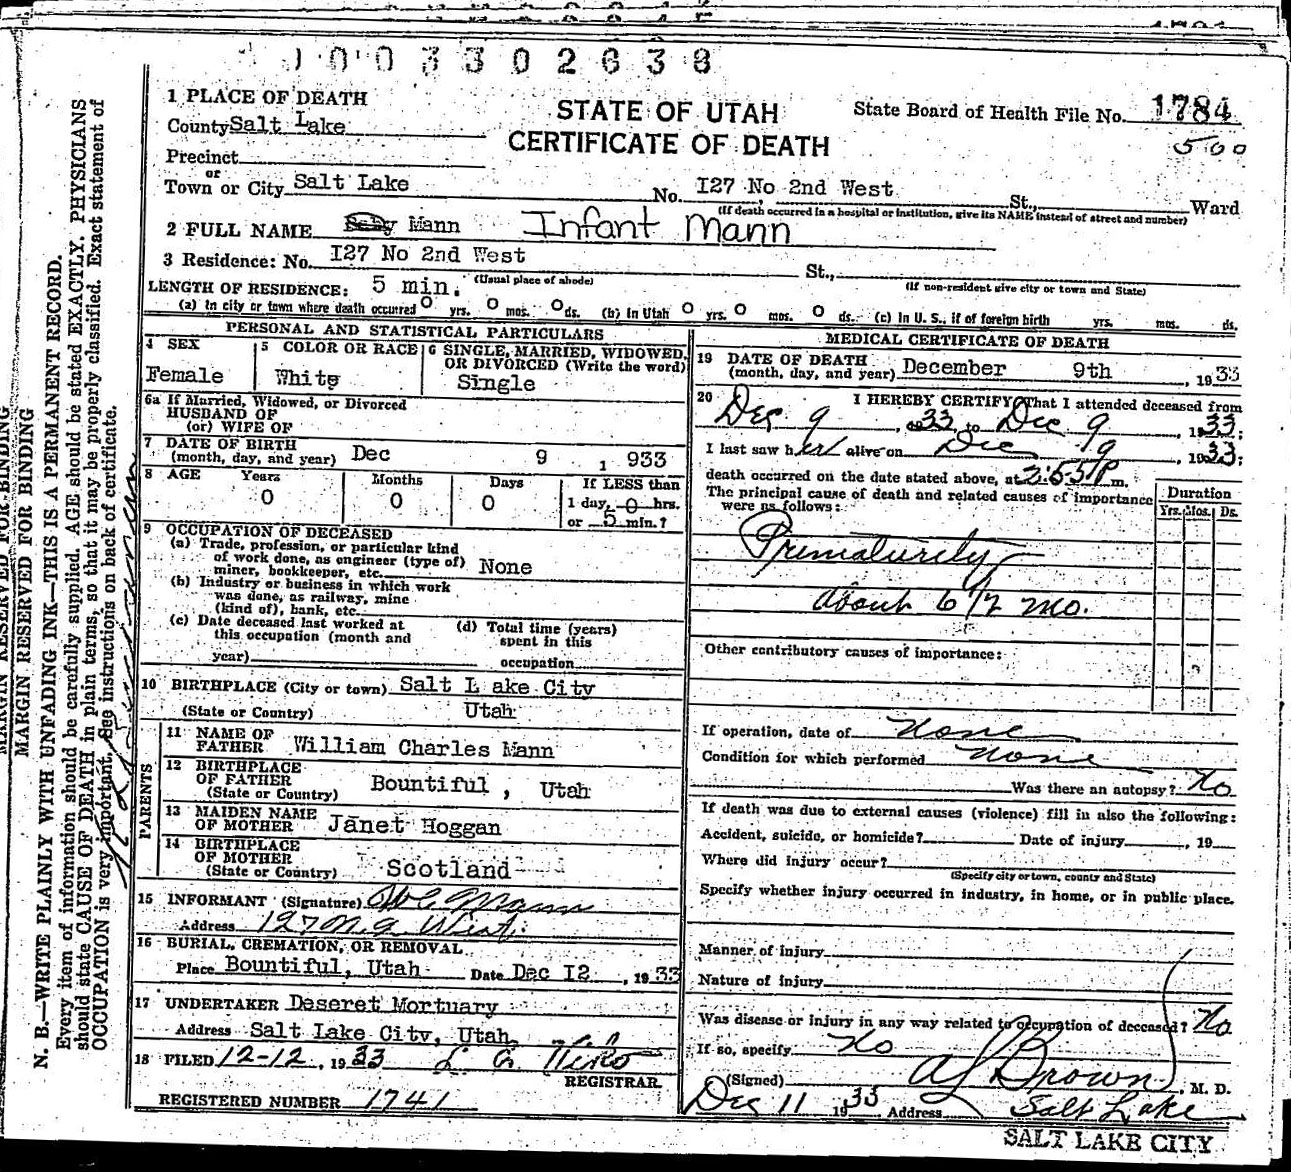 1003302638
1 PLACE OF DEATH
County Salt Lake
STATE OF UTAH
CERTIFICATE OF DEATH
State Board of Health File No. 1784
500
Precinct
or
Town or City Salt Lake No. I27 No 2nd West St., Ward
(If death occurred in a hospital or institution, give its NAME instead of street and number)
2 FULL NAME Baby Mann Infant Mann
3 Residence: No. I27 No 2nd West St.,
(Usual place of abode) (If non-resident give city or town and State)
LENGTH OF RESIDENCE: 5 min.
(a) In city or town where death occurred 0 yrs. 0 mos. 0 ds. (b) In Utah 0 yrs. 0 mos. 0 ds. (c) In U. S., if of foreign birth yrs. mos. ds.
PERSONAL AND STATISTICAL PARTICULARS
4 SEX
Female
5 COLOR OR RACE
White
6 SINGLE, MARRIED, WIDOWED, OR DIVORCED (Write the word)
Single
6a If Married, Widowed, or Divorced
HUSBAND OF
(or) WIFE OF
7 DATE OF BIRTH
(month, day, and year) Dec 9 , 1933
8 AGE Years Months Days If LESS than
0 0 0 1 day, 0 hrs.
or 5 min.?
9 OCCUPATION OF DECEASED
(a) Trade, profession, or particular kind
of work done, as engineer (type of)
miner, bookkeeper, etc. None
(b) Industry or business in which work
was done, as railway, mine
(kind of), bank, etc.
(c) Date deceased last worked at
this occupation (month and
year)
(d) Total time (years)
spent in this
occupation
10 BIRTHPLACE (City or town) Salt L ake City
(State or Country) Utah
PARENTS
11 NAME OF
FATHER William Charles Mann
12 BIRTHPLACE
OF FATHER
(State or Country) Bountiful , Utah
13 MAIDEN NAME
OF MOTHER Janet Hoggan
14 BIRTHPLACE
OF MOTHER
(State or Country) Scotland
15 INFORMANT (Signature) W C Mann
Address 127 N. 2 West.
16 BURIAL, CREMATION, OR REMOVAL
Place Bountiful, Utah Date Dec I2 , 1933
17 UNDERTAKER Deseret Mortuary
Address Salt Lake City, Utah,
18 FILED 12-12 , 1933
REGISTRAR
REGISTERED NUMBER 1741
MEDICAL CERTIFICATE OF DEATH
19 DATE OF DEATH
(month, day, and year) December 9th , 1933
20 I HEREBY CERTIFY, That I attended deceased from
Dec 9 , 33 to Dec 9 , 1933;
I last saw her alive on Dec 9 , 1933;
death occurred on the date stated above, at 2:55 P m.
The principal cause of death and related causes of importance
were as follows:
Duration
Yrs. Mos. Ds.
Prematurity
about 6 1/2 mo.
Other contributory causes of importance:
If operation, date of None
Condition for which performed None
Was there an autopsy? No
If death was due to external causes (violence) fill in also the following:
Accident, suicide, or homicide? Date of injury , 19
Where did injury occur?
(Specify city or town, county and State)
Specify whether injury occurred in industry, in home, or in public place.
Manner of injury
Nature of injury
Was disease or injury in any way related to occupation of deceased? No
If so, specify No
(Signed) Brown , M. D.
Dec 11 1933 Address Salt Lake
SALT LAKE CITY
MARGIN RESERVED FOR BINDING
MARGIN RESERVED FOR BINDING
N. B.—WRITE PLAINLY WITH UNFADING INK—THIS IS A PERMANENT RECORD.
Every item of information should be carefully supplied. AGE should be stated EXACTLY. PHYSICIANS
should state CAUSE OF DEATH in plain terms, so that it may be properly classified. Exact statement of
OCCUPATION is very important. See instructions on back of certificate.